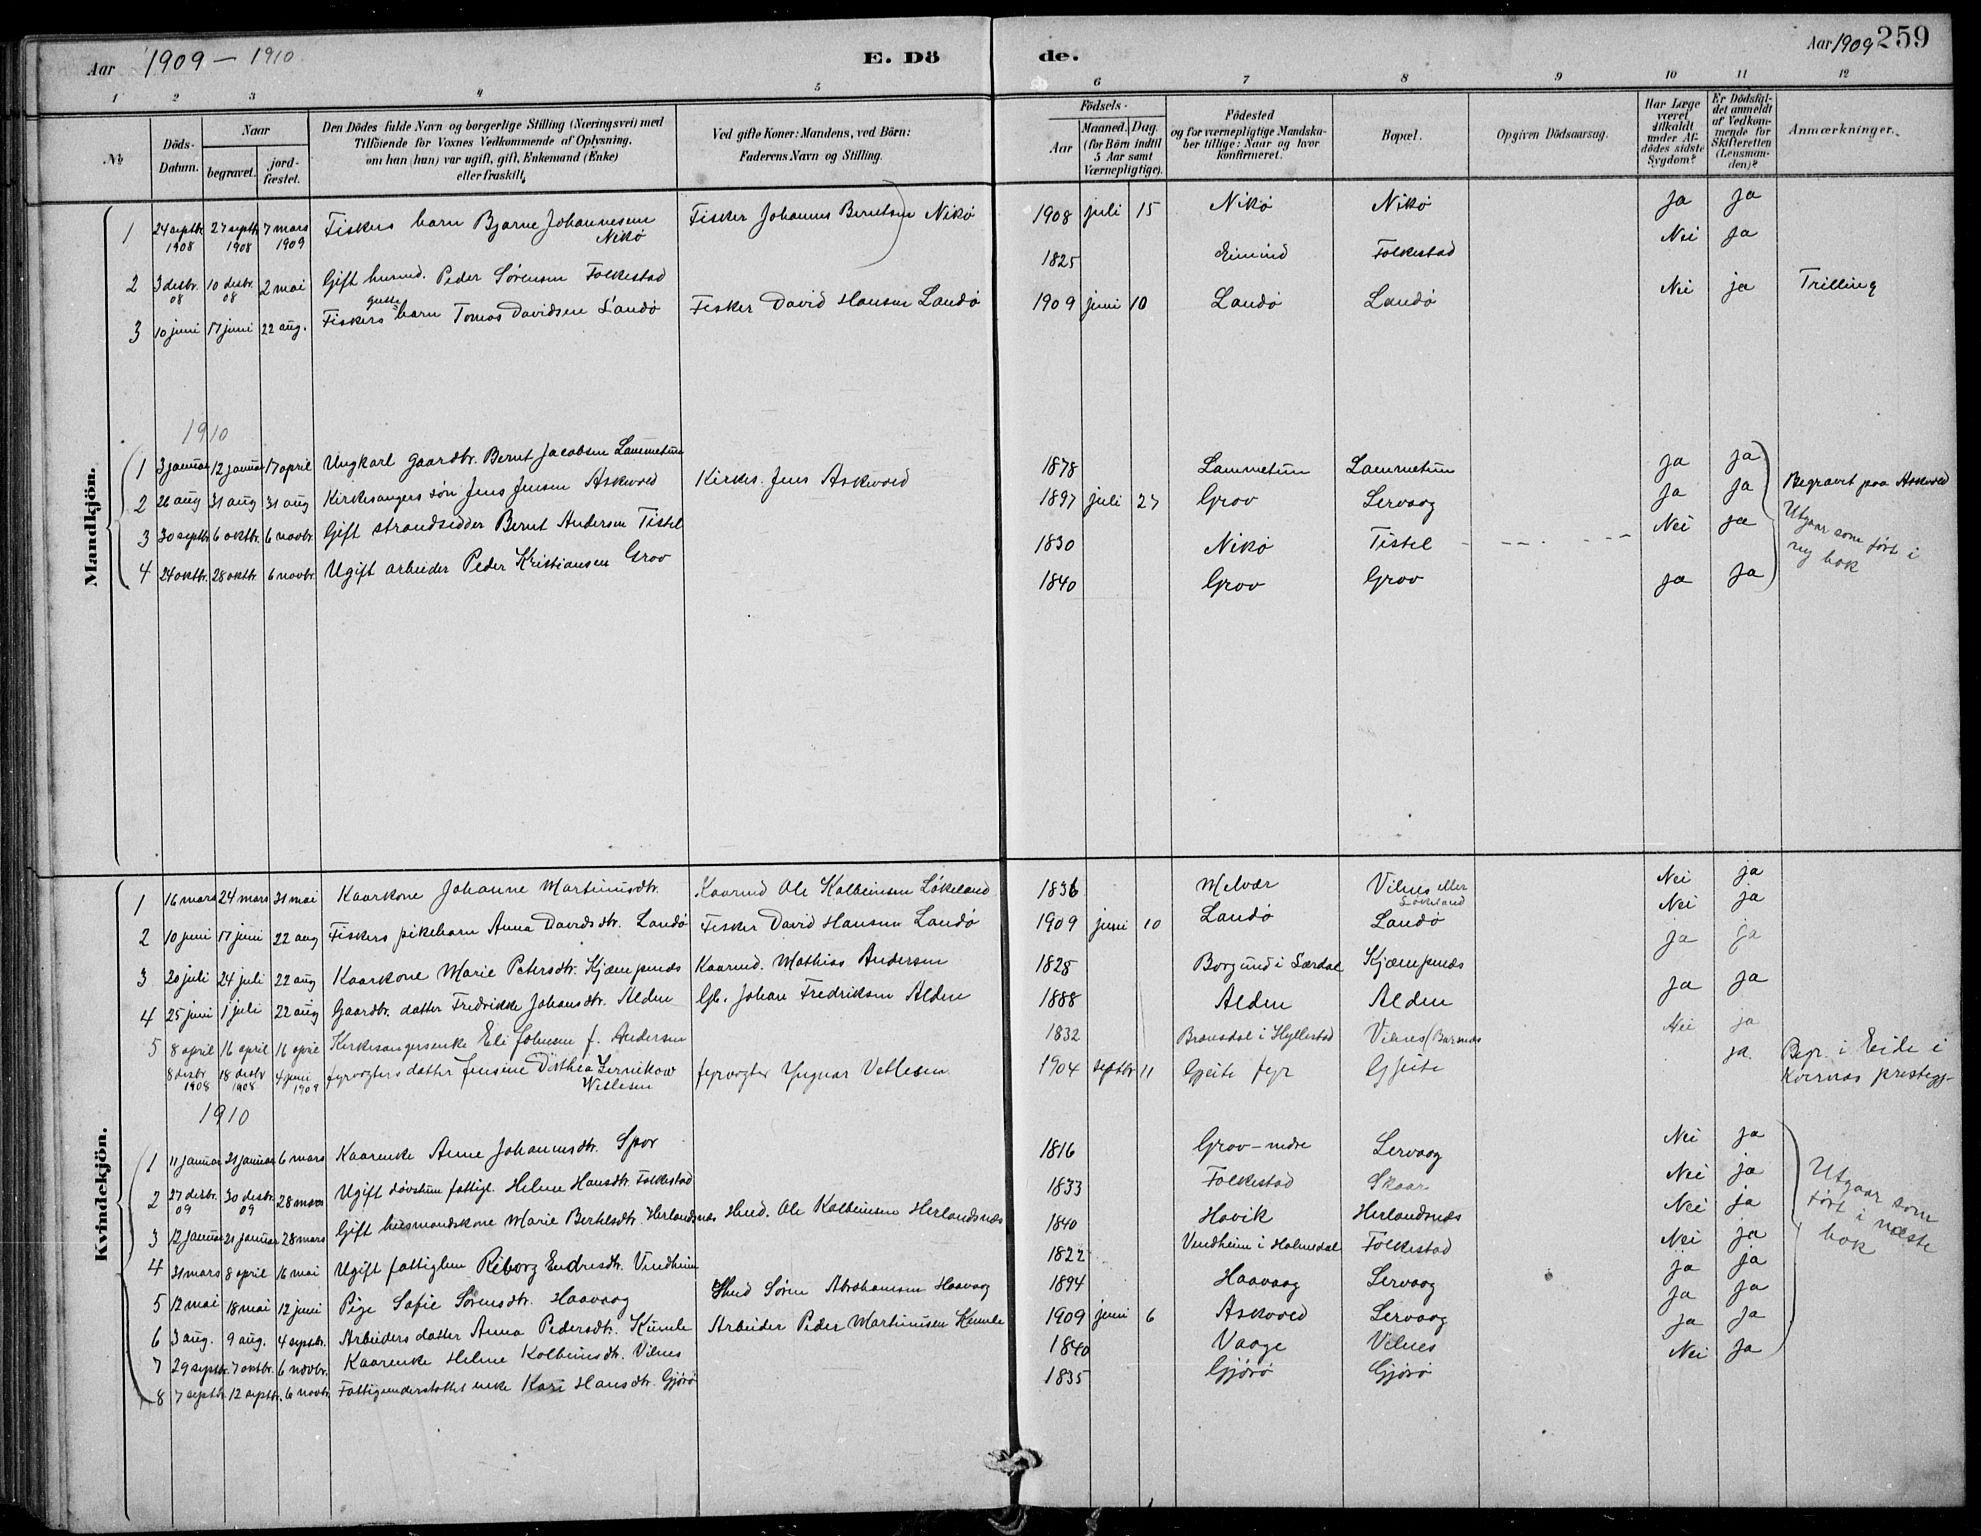 Aar 1909 – 1910 E. Dö de. Aar 1909 259
1 2 3 4 5 6 7 8 9 10 11 12
No
Döds-Datum.
Naar
begravet.
jord-fæstet.
Den Dödes fulde Navn og borgerlige Stilling (Næringsvei) med
Tilföiende for Voxnes Vedkommende af Oplysning,
om han (hun) var ugift, gift, Enkemand (Enke)
eller fraskilt.
Ved gifte Koner: Mandens, ved Börn:
Faderens Navn og Stilling.
Födsels-
Aar
Maaned. Dag.
(for Börn indtil
5 Aar samt
Værnepligtige).
Födested
og for værnepligtige Mandska-
ber tillige: Naar og hvor
konfirmeret.
Bopæl.
Opgiven Dödsaarsag.
Har Læge
været
tilkaldt
under Af-
dödes sidste
Sygdom?
Er Dödsfal-
det anmeldt
af Vedkom-
mende for
Skifteretten
(Lensman-
den)?
Anmærkninger.
Mandkjön.
1 24 septbr. 1908 27 septbr. 1908 7 mars 1909 Fiskers barn Bjarne Johannesen Nikø Fisker Johannes Berntsen Nikø 1908 juli 15 Nikø Nikø Ja Ja
2 3 desbr. 08 10 desbr. 08 2 mai Gift husmd. Peder Sørensen Folkestad 1825 Folkestad Nei Ja
3 10 juni 17 juni 22 aug. Fiskers guttebarn Tomas Davidsen Landø Fisker David Hansen Landø 1909 juni 10 Landø Landø Nei ja Trilling
1910
1 3 januar 12 januar 17 april Ungkarl gaardbr. Bernt Jacobsen Lammetun 1878 Lammetun Lammetun Ja Ja
2 26 aug 31 aug 31 aug Kirkesangers søn Jens Jensen Askvoed Kirkes. Jens Askvoed 1897 juli 27 Grov Lervaag Ja Ja Begravet paa Askvoed
3 30 septbr. 6 oktbr. 6 novbr. Gift strandsidder Bernt Andersen Tistel 1830 Nikø Tistel Nei ja
4 24 oktbr. 28 oktbr. 6 novbr. Ugift arbeider Peder Kristiansen Grov 1840 Grov Grov ja Ja
Utgaar som ført i
ny bok
Kvindekjön.
1 16 mars 24 mars 31 mai Kaarkone Johanne Martinusdtr. Kaarmd Ole Kolbeinsen Løkeland 1836 Melvær Vilnes eller Løkeland Nei ja
2 10 juni 17 juni 22 aug Fiskers pikebarn Anna Davidsdtr. Landø Fisker David Hansen Landø 1909 juni 10 Landø Landø Nei ja
3 20 juli 24 juli 22 aug Kaarkone Marie Petersdtr. Kjæmpenes Kaarmd. Mathias Andersen 1828 Borgund i Lærdal Kjæmpenes ja ja
4 25 juni 1 juli 22 aug Gaardbr. datter Fredrikke Johansdtr. Alden Gb. Johan Fredriksen Alden 1888 Alden Alden ja ja
5 8 april 16 april 16 april Kirkesangersenke Eli Johnsen f. Andersen 1832 i Hyllestad Vilnes Nei ja
8 desbr 1908 18 desbr 1908 4 juni 1909 fyrvogters datter Jensine Dorthea Zernikow Vetlesen fyrvogter Yngvar Vetlesen 1904 septbr 11 Gjeite fyr Gjeite ja. Begr. i Eide i
Kvernæs prestegj.
1910
1 11 januar 21 januar 6 mars Kaarenke Anne Johannesdtr. Spor 1816 Grov – nedre Lervaag Nei ja
2 27 desbr. 09 30 desbr. 09 28 mars Ugift døvstum fattigl. Helene Hansdtr. Folkestad 1833 Folkestad Skaar Nei ja
3 12 januar 21 januar 28 mars Gift husmandskone Marie Bertelsdtr. Herlandsnæs Husd. Ole Kolbeinsen Herlandsnæs 1840 Havik Herlandsnæs Nei ja
4 31 mars 8 april 16 mai Ugift fattiglem Riborg Endresdtr. Vindheim 1822 Vindheim i Holmedal Folkestad Nei ja
5 12 mai 18 mai 12 juni Pige Sofie Sørensdtr. Haavaag Husd Søren Abrahamsen Haavaag 1894 Haavaag Lervaag ja ja
6 3 aug. 9 aug. 4 septbr. Arbeiders datter Anna Pedersdtr. Kumle Arbeider Peder Martinusen Kumle 1909 juni 6 Askvoed Lervaag ja ja
7 29 septbr. 7 oktbr. 6 novbr. Kaarenke Helene Kolbeinsdtr. Vilnes 1840 Vaage Vilnes ja ja
8 7 septbr. 12 septbr. 6 novbr. Fattigunderstøttet enke Kari Hansdtr. Gjørø 1835 Gjørø Gjørø Nei ja
Utgaar som
ført i næste
bok